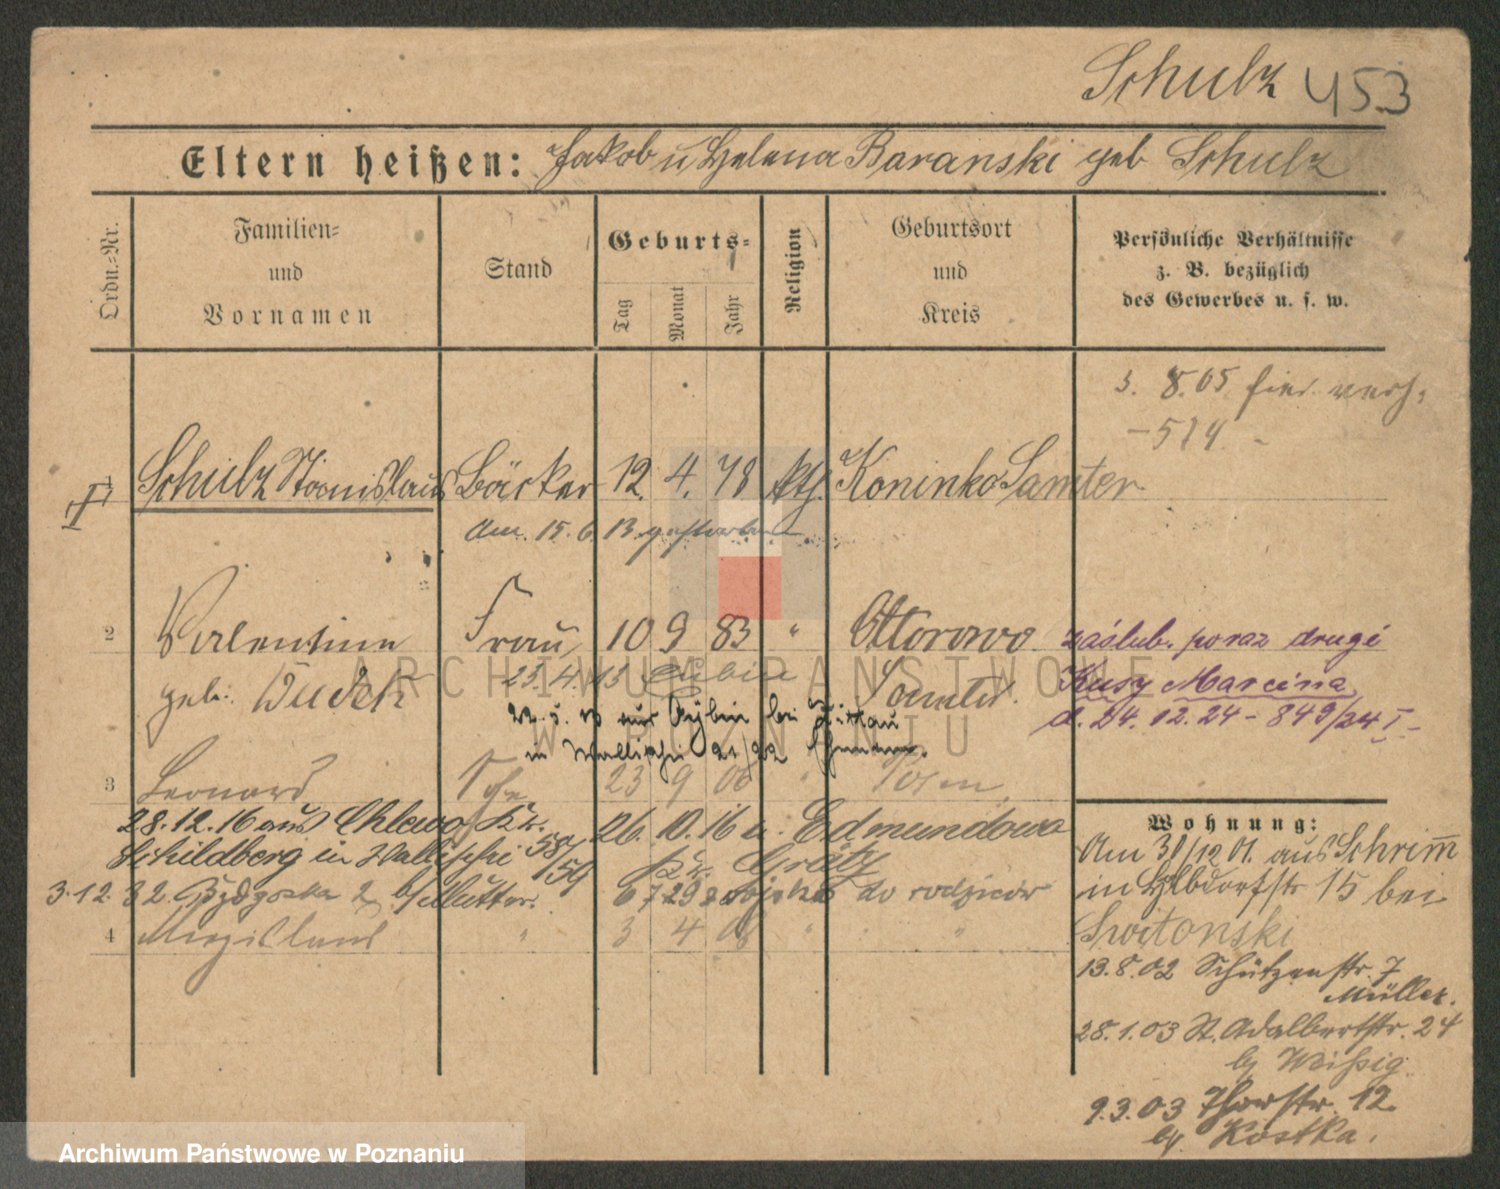 Schulz 453
Eltern heißen: Jakob u Helena Baranski geb Schulz
Ordn.-Nr.
Familien-
und
Vornamen
Stand
Geburts-
Tag
Monat
Jahr
Religion
Geburtsort
und
Kreis
Persönliche Verhältnisse
z. B. bezüglich
des Gewerbes u. s. w.
3. 8.05 hier verh.
-514-
1 Schulz Stanislaus Bäcker 12. 4. 78 kth. Koninko Samter
Am 15. 6. 13 gestorben
2 Valentine Frau 10 9 83 " Ottorowo
zaślub. poraz drugi
geb. Dudek
23. 4. 13
Samter
Kusy Marcina
d. 24. 12. 24 - 849/24 I
22. 5. 13 aus bei
in Wallischei 21/22
3 Leonard Sohn 23 9 06 " Posen
28.12.16 aus Chlewo Kr.
26. 10. 16 a. Edmundowo
Schildberg in Wallischei 58/59
Kr. Grätz
3.12. 32. Bydgoska 2 b/ Mutter.
6 7 29 do rodziców
4 " 3 4 08 " "
Wohnung:
Am 31/12 01. aus Schrim̅
in 15 bei
Switonski
13.8.02 Schützenstr. 7
Müller.
28.1.03 St. Adalbertstr. 24
by Weissig
9.3.03 Thorstr. 12
by Kostka.
ARCHIWUM PAŃSTWOWE
W POZNANIU
Archiwum Państwowe w Poznaniu